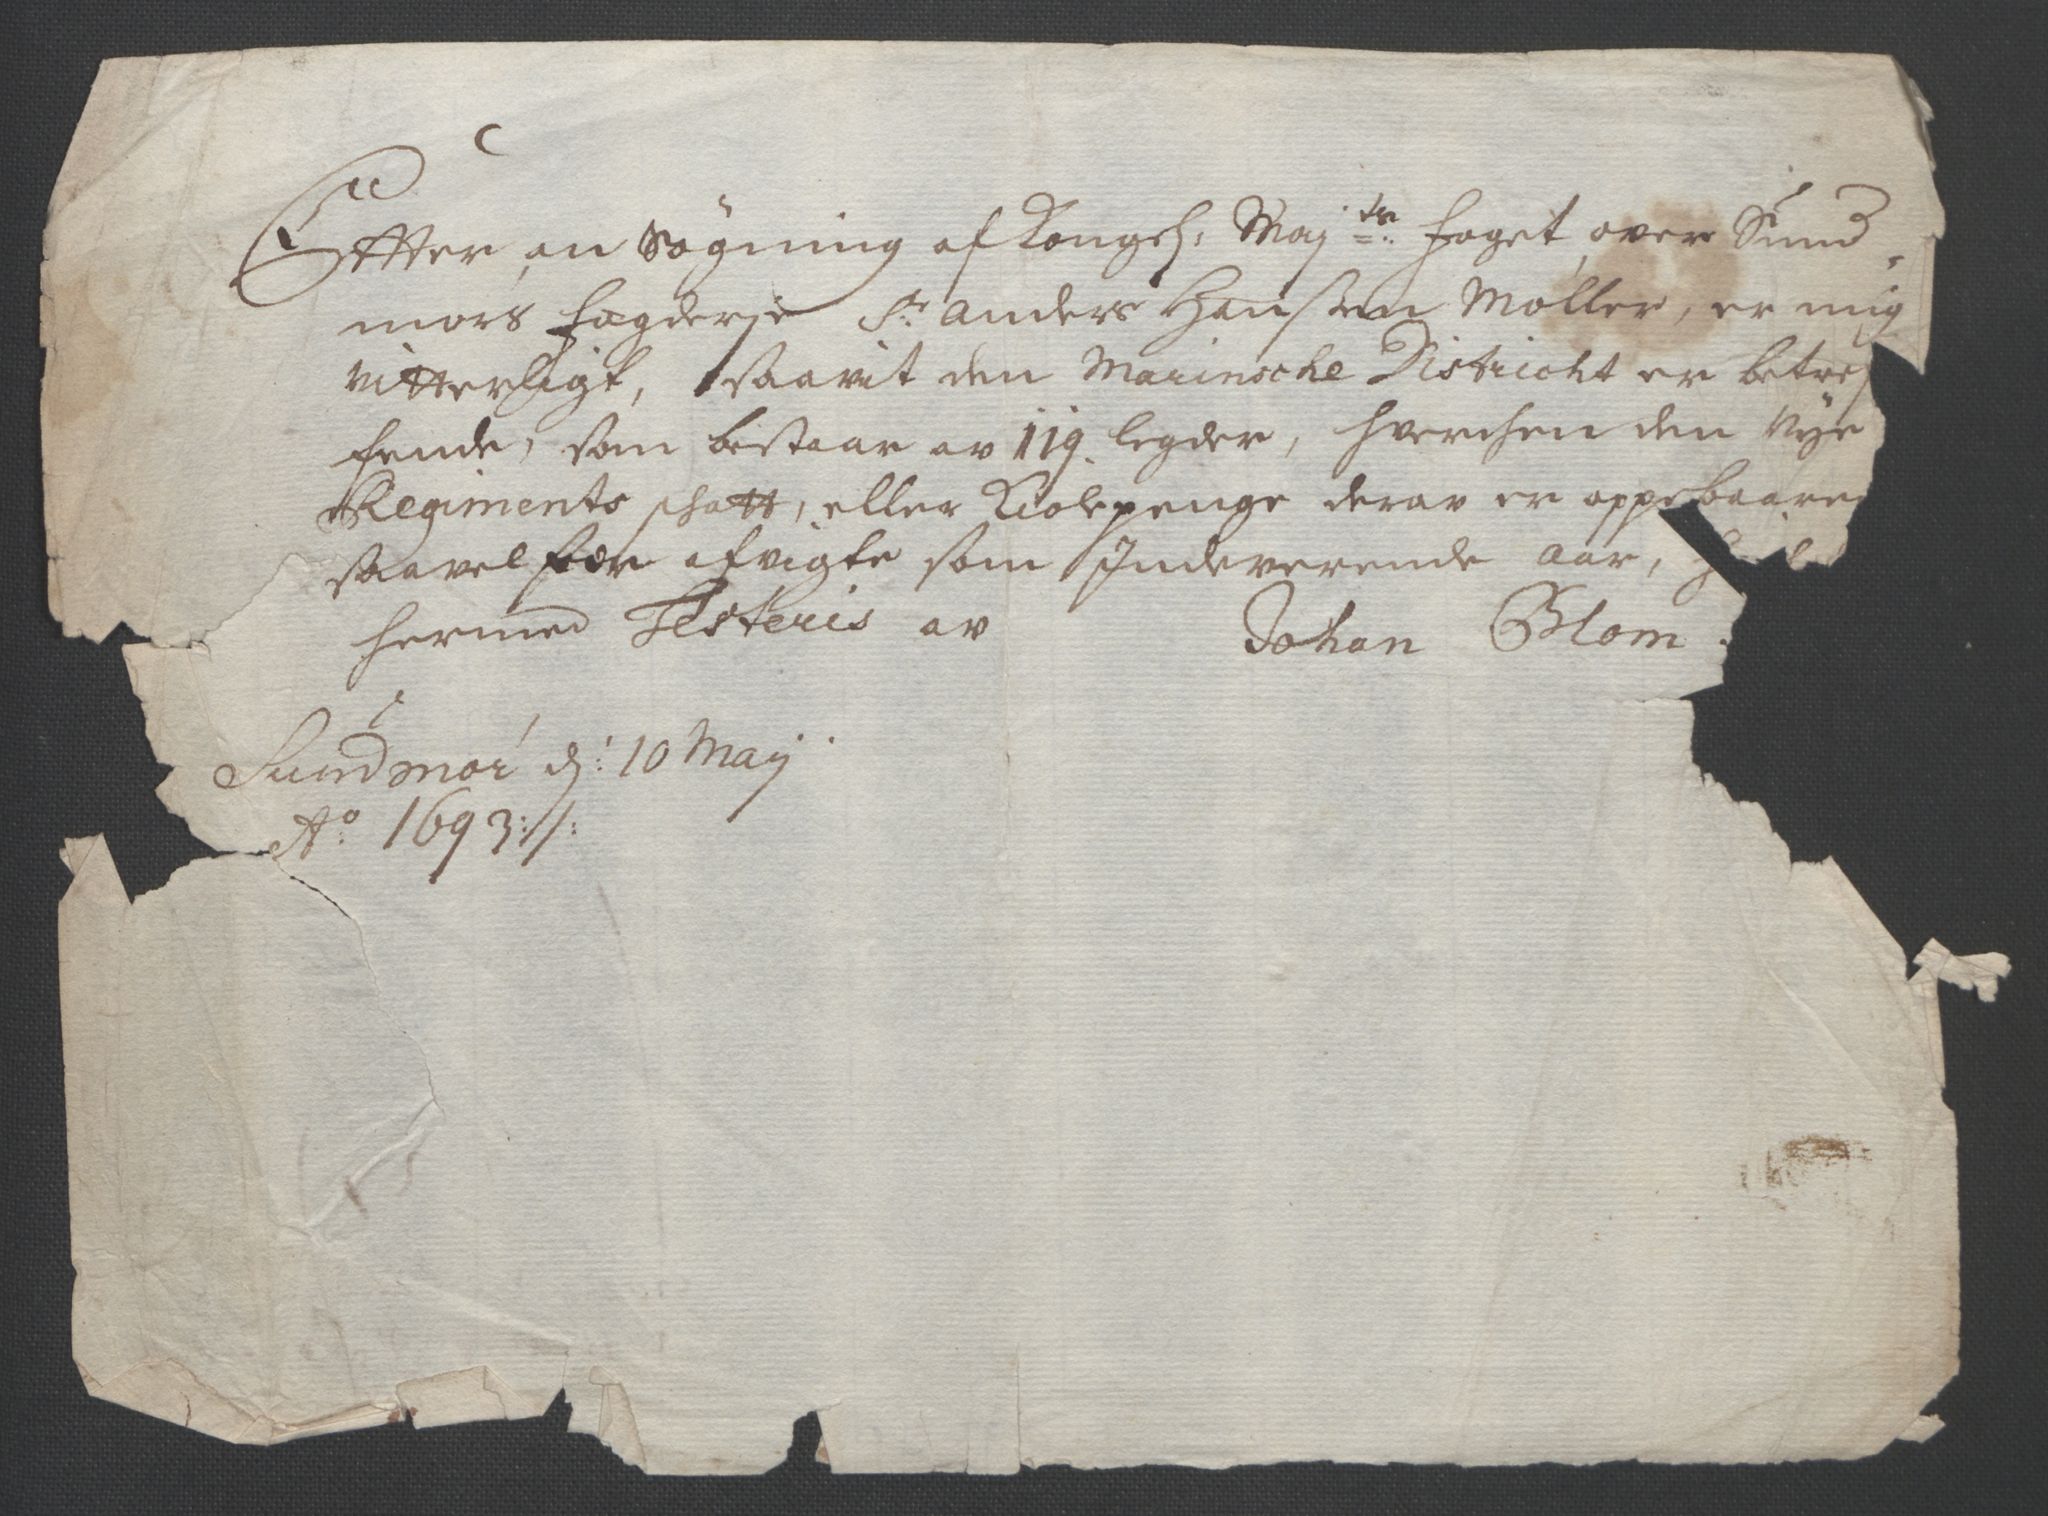 Efter an Søgning af Kongel: Maj:ts foget over Sund
mørs fogderje Sr: Anders Hanssen Møller, er mig
vitterligt, saavit den Marinsche District er betref
fende, som bestaar av 119. legder, hverchen den Nye
Regiments schatt, eller Kiolepenge derav er oppebaaren
saavel for afvigte som Indeverende Aar,
hermed Testeris av Johan Blom.
Sundmør d: 10 Maij
Ao. 1693:/: